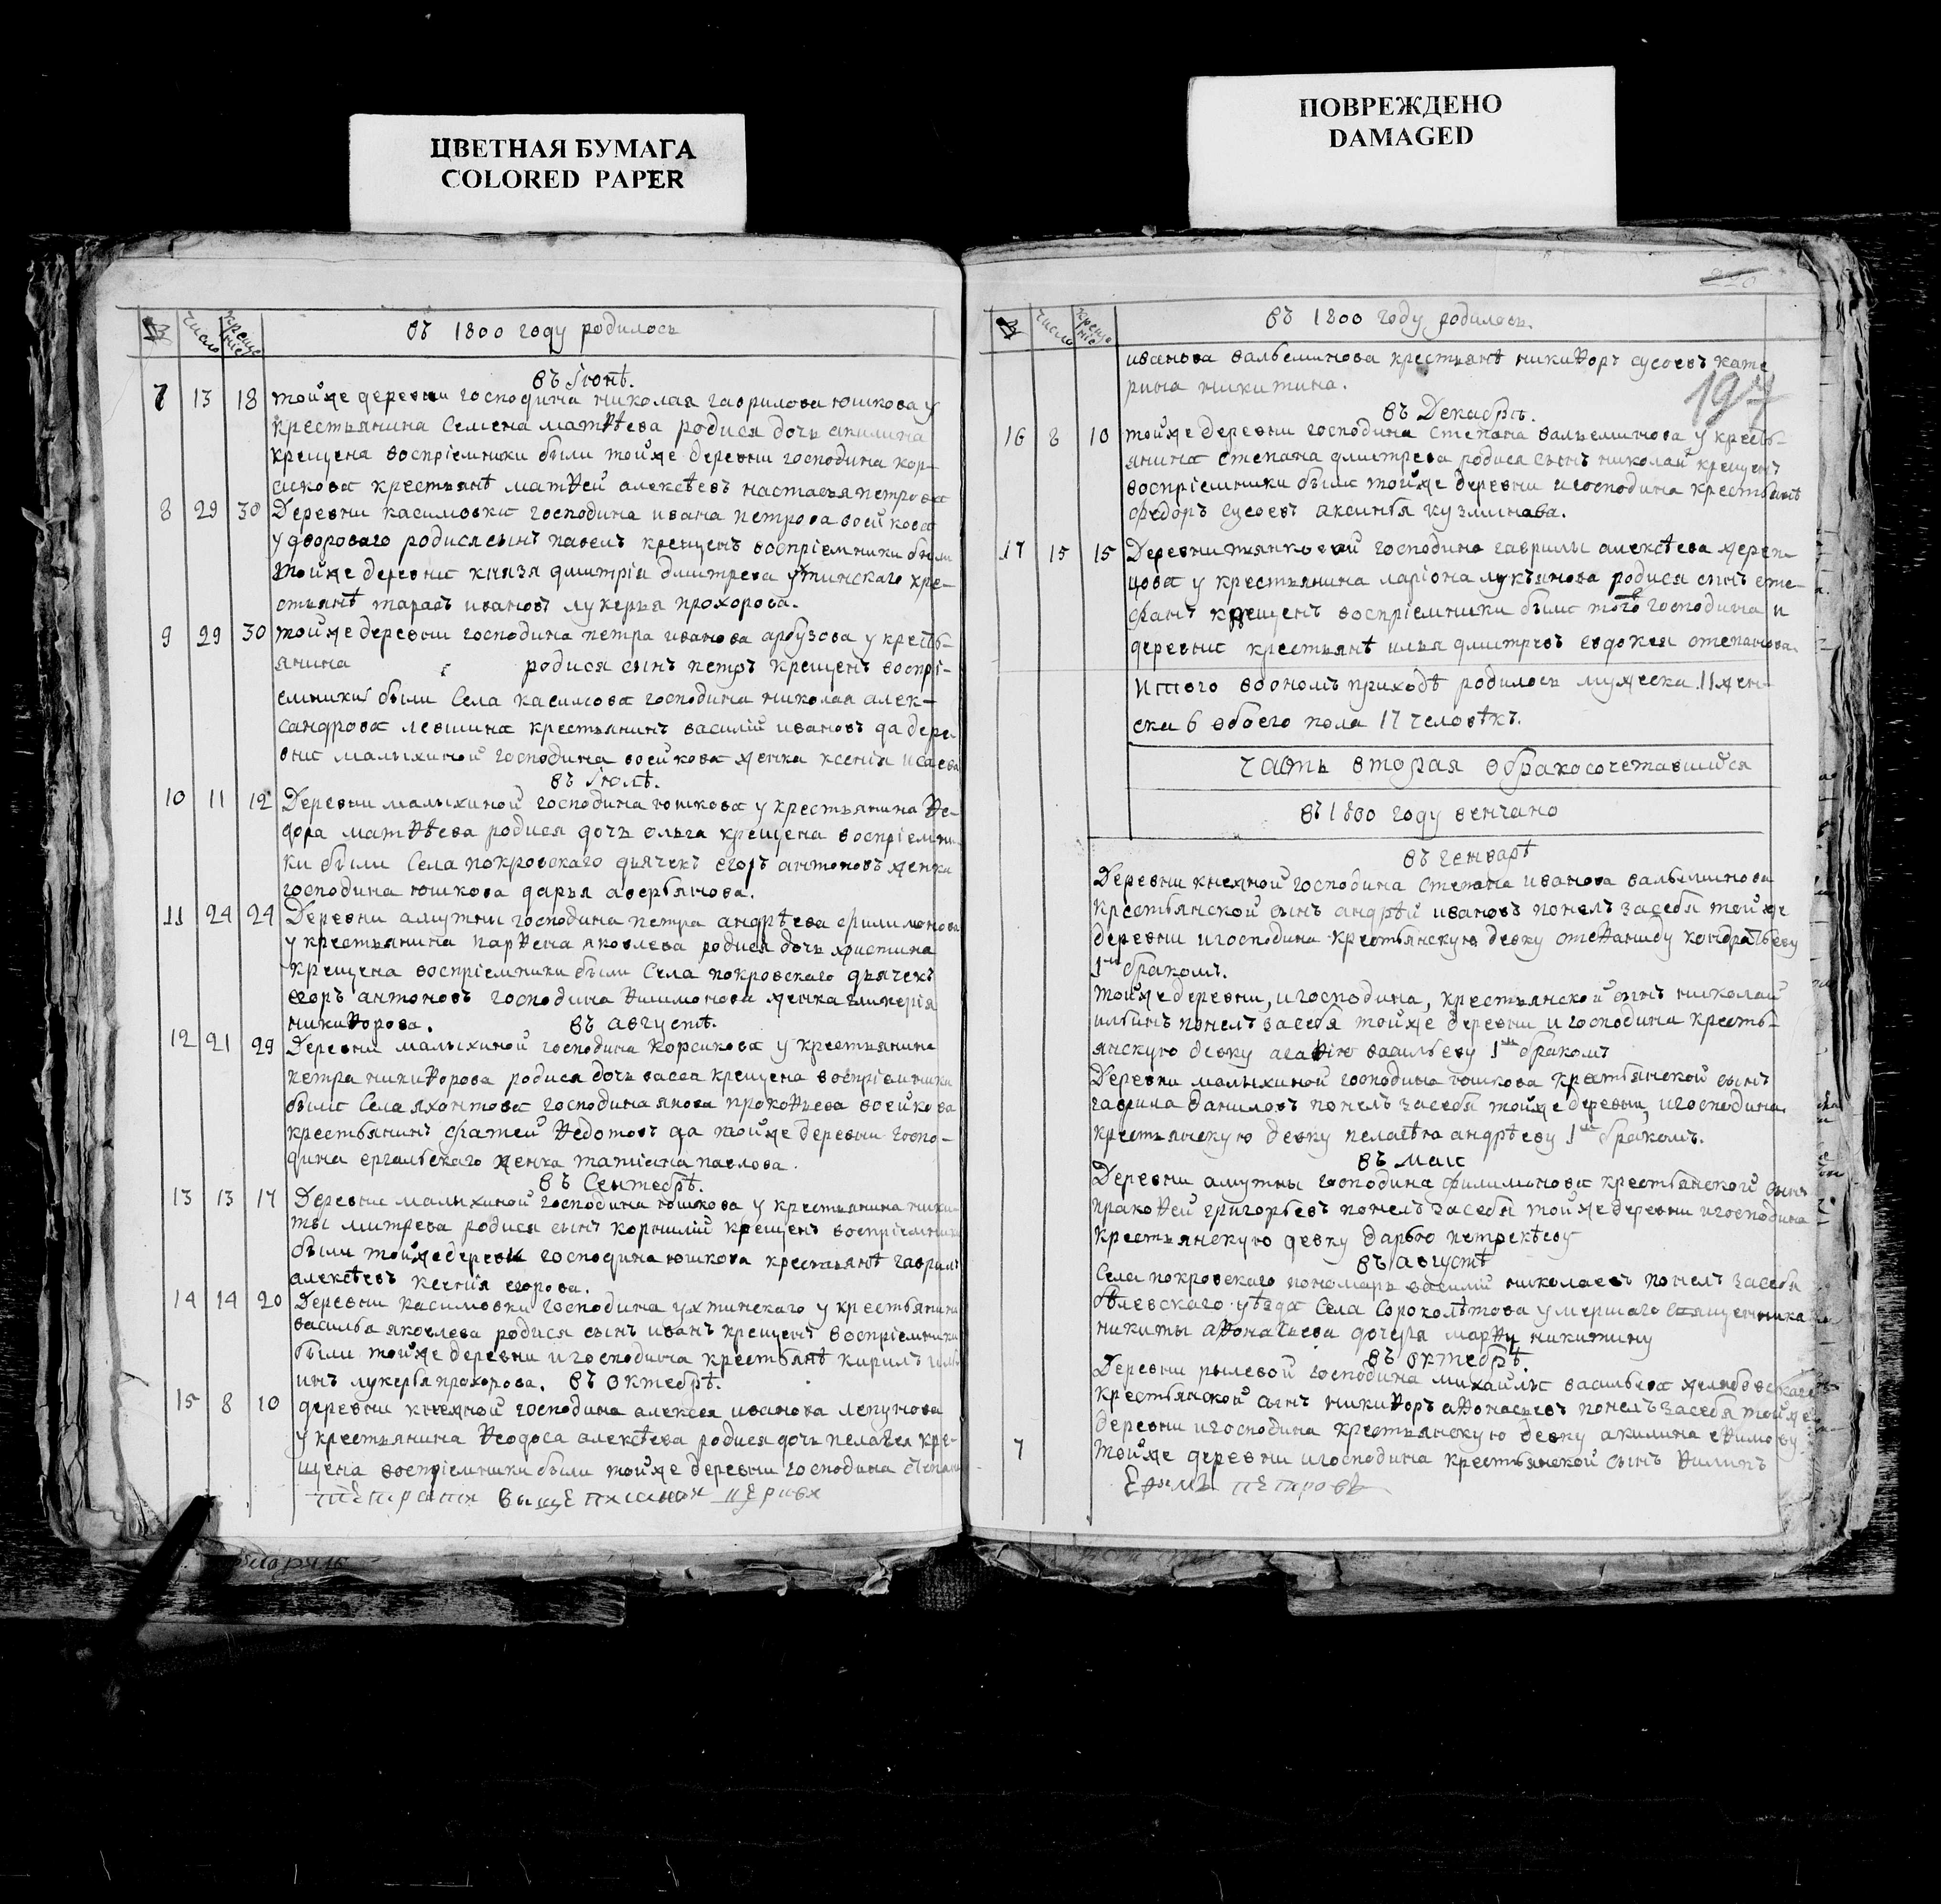 ЦВЕТНАЯ БУМАГА
COLORED PAPER
ПОВРЕЖДЕНО
DAMAGED
№ число крещение въ 1800 году родилось
въ Iюнѣ.
7 13 18 тойже деревни господина николая гаврилова юшкова у
крестьянина Семена матѳѣева родися дочь акилина
крещена воспрiемники были тойже деревни господина кор-
сакова крестьянѣ матѳей алексѣевъ настасья петрова
8 29 30 Деревни касимовки господина ивана петрова воейкова
у двороваго родися сынъ павелъ крещенъ воспрiемники были
тойже деревни князя дмитрiя дмитрева ухтинскаго кре-
стьянѣ тарасъ ивановъ лукерья прохорова.
9 29 30 тойже деревни господина петра иванова арбузова у кресть-
янина родися сынъ петръ крещенъ воспрi-
емники были Села касимова господина николая алек-
сандрова левшина крестьянинъ василiй ивановъ да дере
вни малыхиной господина воейкова женка ксенiя исаева
въ Iюлѣ.
10 11 12 Деревни малыхиной господина юшкова у крестьянина ѳе-
дора матѳѣева родися дочь ольга крещена воспрiемни-
ки были Села покровскаго дьячекъ егоръ антоновъ женка
господина юшкова дарья аверьянова.
11 24 24 Деревни амутны господина петра андрѣева филимонова
у крестьянина парѳена яковлева родися дочь христина
крещена воспрiемники были Села покровскаго дьячекъ
егоръ антоновъ господина ѳилимонова женка гликерiя
никиѳорова. въ августѣ.
12 21 29 Деревни малыхиной господина корсакова у крестьянина
петра никиѳорова родися дочь васса крещена воспрiемники
были Села яхонтова господина якова прокоѳьева воейкова
крестьянинъ фатей ѳедотовъ да тойже деревни госпо-
дина ергальскаго женка татiана павлова.
въ Сентебрѣ.
13 13 17 Деревни малыхиной господина юшкова у крестьянина ники-
ты митрева родися сынъ корнилiй крещенъ воспрiемники
были тойже деревни господина юшкова крестьянѣ гаврилъ
алексѣевъ ксенiя егорова.
14 14 20 Деревни касимовки господина ухтинскаго у крестьянина
василья яковлева родися сынъ иванъ крещенъ воспрiемники
были тойже деревни и господина крестьянѣ кирилъ иль
инъ лукерья прохорова. въ октебрѣ.
15 8 10 деревни кнежной господина алексея иванова лепунова
у крестьянина ѳеодоса алексѣева родися дочь пелагея кре-
щена воспрiемники были тойже деревни господина степана
вышеписанои церкви
№ число крещение въ 1800 году родилось.
иванова вальеминова крестьянѣ никиѳоръ сусоевъ кате
рина никитина.
197
въ Декабрѣ.
16 8 10 тойже деревни господина степана вальеминова у кресть-
янина степана дмитрева родися сынъ николай крещенъ
воспрiемники были тойже деревни и господина крестьянѣ
федоръ сусоевъ аксинья кузминова.
17 15 15 Деревни тянковой господина гаврилы алексѣева череп-
цова у крестьянина ларiона лукъянова родися сынъ сте-
фанъ крещенъ воспрiемники были того господина и
деревни крестьянѣ илья дмитревъ евдокея степанова.
Итого в ономъ приходѣ родилось мужеска 11 жен-
ска 6 обоего пола 17 человѣкъ.
часть вторая о бракосочетавшихся
въ 1800 году венчано
въ генварѣ
Деревни кнежной господина степана иванова вальеминова
крестьянской сынъ андрѣй ивановъ понелъ за себя тойже
деревни и господина крестьянскую девку стеѳаниду кондратьеву
1мъ бракомъ.
тойже деревни, и господина, крестьянской сынъ николай
ильинъ понелъ за себя тойже деревни и господина кресть-
янскую девку агаѳiю васильеву 1мъ бракомъ
Деревни малыхиной господина юшкова крестьянской сынъ
гаврила даниловъ понелъ за себя тойже деревни, и господина.
крестьянскую девку пелагѣю андрѣеву 1мъ бракомъ.
въ маи
Деревни амутны господина филимонова крестьянской сынъ
пракоѳей григорьевъ понелъ за себя тойже деревни и господина
крестьянскую девку дарью петрекѣеву
въ августѣ
Села покровскаго пономарь василiй николаевъ понелъ за себя
бѣлевскаго уѣзда Села Сороколѣтова умершаго священника
никиты аѳонасьева дочеря марѳу никитину
въ октебрѣ.
Деревни рылевой господина михайлы васильева желябовскаго
крестьянской сынъ никиѳоръ аѳонасьевъ понелъ за себя тойже
деревни и господина крестьянскую девку акилина еѳимову
7 тойже деревни и господина крестьянской сынъ ѳилипъ
петровъ